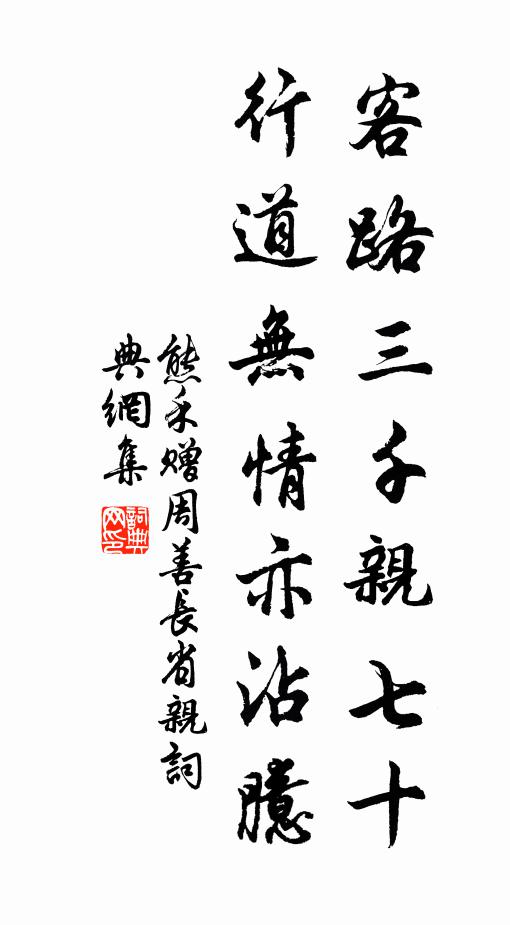 客路三千親七十
行道無情亦沾臆
熊禾贈周善長省親詞
典網集
詞典網印